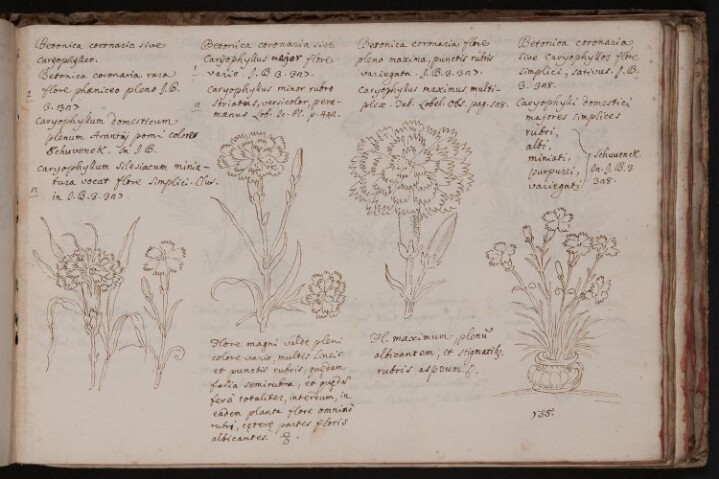 Betonica coronaria sive
caryophylleo.
Betonica coronaria rara
flore phœniceo pleno J.B.
3. 327.
Caryophyllum domesticum
plenum Arantij pomi coloris
Schwenck. In J.B.
caryophyllum silesiacum minia-
tura vocat flore simplici. Clus.
in J.B. 3. 327.
Betonica coronaria sive
Caryophyllus major flore
vario. J.B 3. 327.
Caryophyllus minor rubro
striatus, versicolor, pere-
manus Lob. Ic. Pl. p. 442.
Flore magni valde pleni
colore vario, multis lineis
et punctis rubris, quędam
folia semirubra, et quędã
ferè totaliter, interdum, in
eadem planta flore omninò
rubri, cęterę partes floris
albicantes.
Betonica coronaria flore
pleno maxima, punctis rubris
variegata. J.B. 3. 327.
Caryophyllus maximus multi-
plex. Lobel. Obs. pag. 508.
Fl. maximum plenũ
albicantem, et stigmatib.
rubris aspersum
Betonica coronaria
sive Caryophyllos flore
simplici, sativus. J.B.
3. 328.
Caryophylli domestici
majores simplices
rubri,
albi,
miniati,
purpurei,
variegati
Schwenck.
In. J.B. 3
328.
155.